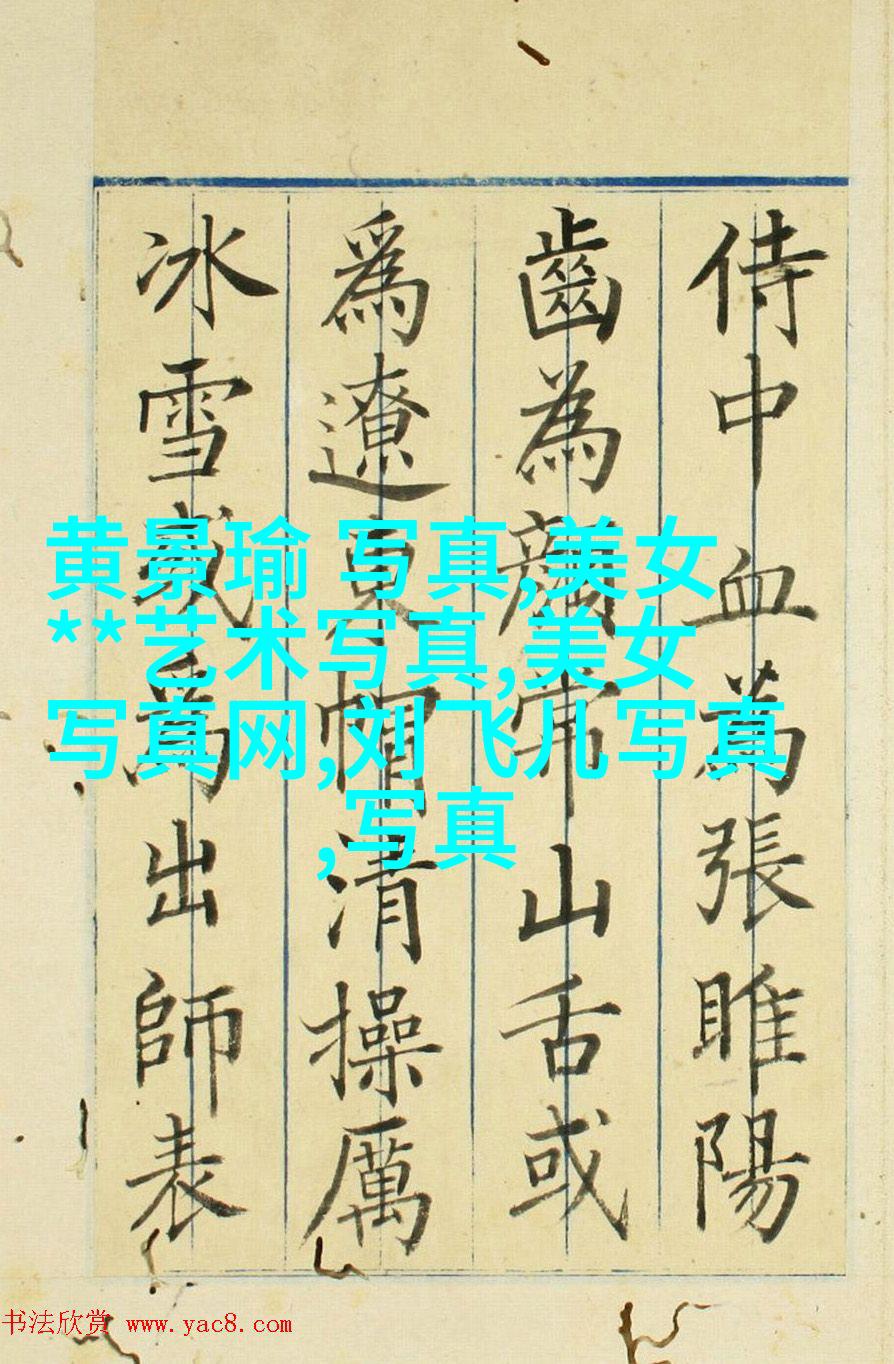 侍中血為張睢陽
齒為顏常山舌或
爲遼東帽清操厲
冰雪或爲出師表
黄景瑜 写真,美女
**艺术写真,美女
写真网,刘飞儿写真
,写真
书法欣赏 www.yac8.com